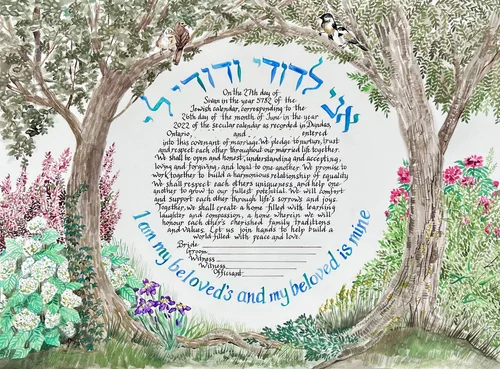 אני לדודי ודודי לי
On the 27th day of
Sivan in the year 5782 of the
Jewish calendar, corresponding to the
26th day of the month of June in the year
2022 of the secular calendar as recorded in Dundas,
Ontario, and entered
into this covenant of marriage. We pledge to nurture, trust
and respect each other throughout our married life together.
We shall be open and honest, understanding and accepting,
loving and forgiving, and loyal to one another. We promise to
work together to build a harmonious relationship of equality.
We shall respect each other's uniqueness, and help one
another to grow to our fullest potential. We will comfort
and support each other through life's sorrows and joys.
Together, we shall create a home filled with learning
laughter and compassion, a home wherein we will
honour each other's cherished family traditions
and Values. Let us join hands to help build a
world filled with peace and love.
Bride
Groom
Witness
Witness
Officiant
I am my beloved's and my beloved is mine